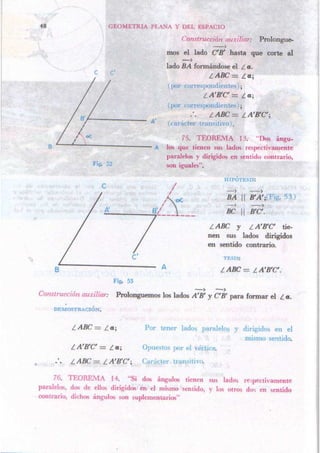 48
GEOMETRIA PLANA Y DEL ESPACIO
Construcción auxiliar: Prolongue-
mos el lado C'B' hasta que corte al
lado BA formándose el ∠ α.
∠ ABC = ∠ α;
(por correspondientes);
∠ A'B'C' = ∠ α;
(por correspondientes);
∴ ∠ ABC = ∠ A'B'C';
(carácter transitivo).
C C'
B' A'
α
B A
Fig. 52
75. TEOREMA 13. "Dos ángu-
los que tienen sus lados respectivamente
paralelos y dirigidos en sentido contrario,
son iguales".
HIPÓTESIS
BA || B'A'; (Fig. 53)
BC || B'C'.
∠ ABC y ∠ A'B'C' tie-
nen sus lados dirigidos
en sentido contrario.
TESIS
∠ ABC = ∠ A'B'C'.
C
α
A' B'
C'
B A
Fig. 53
Construcción auxiliar: Prolonguemos los lados A'B' y C'B' para formar el ∠ α.
DEMOSTRACIÓN:
∠ ABC = ∠ α; Por tener lados paralelos y dirigidos en el
mismo sentido.
∠ A'B'C' = ∠ α; Opuestos por el vértice.
∴ ∠ ABC = ∠ A'B'C'; Carácter transitivo.
76. TEOREMA 14. "Si dos ángulos tienen sus lados respectivamente
paralelos, dos de ellos dirigidos en el mismo sentido, y los otros dos en sentido
contrario, dichos ángulos son suplementarios"